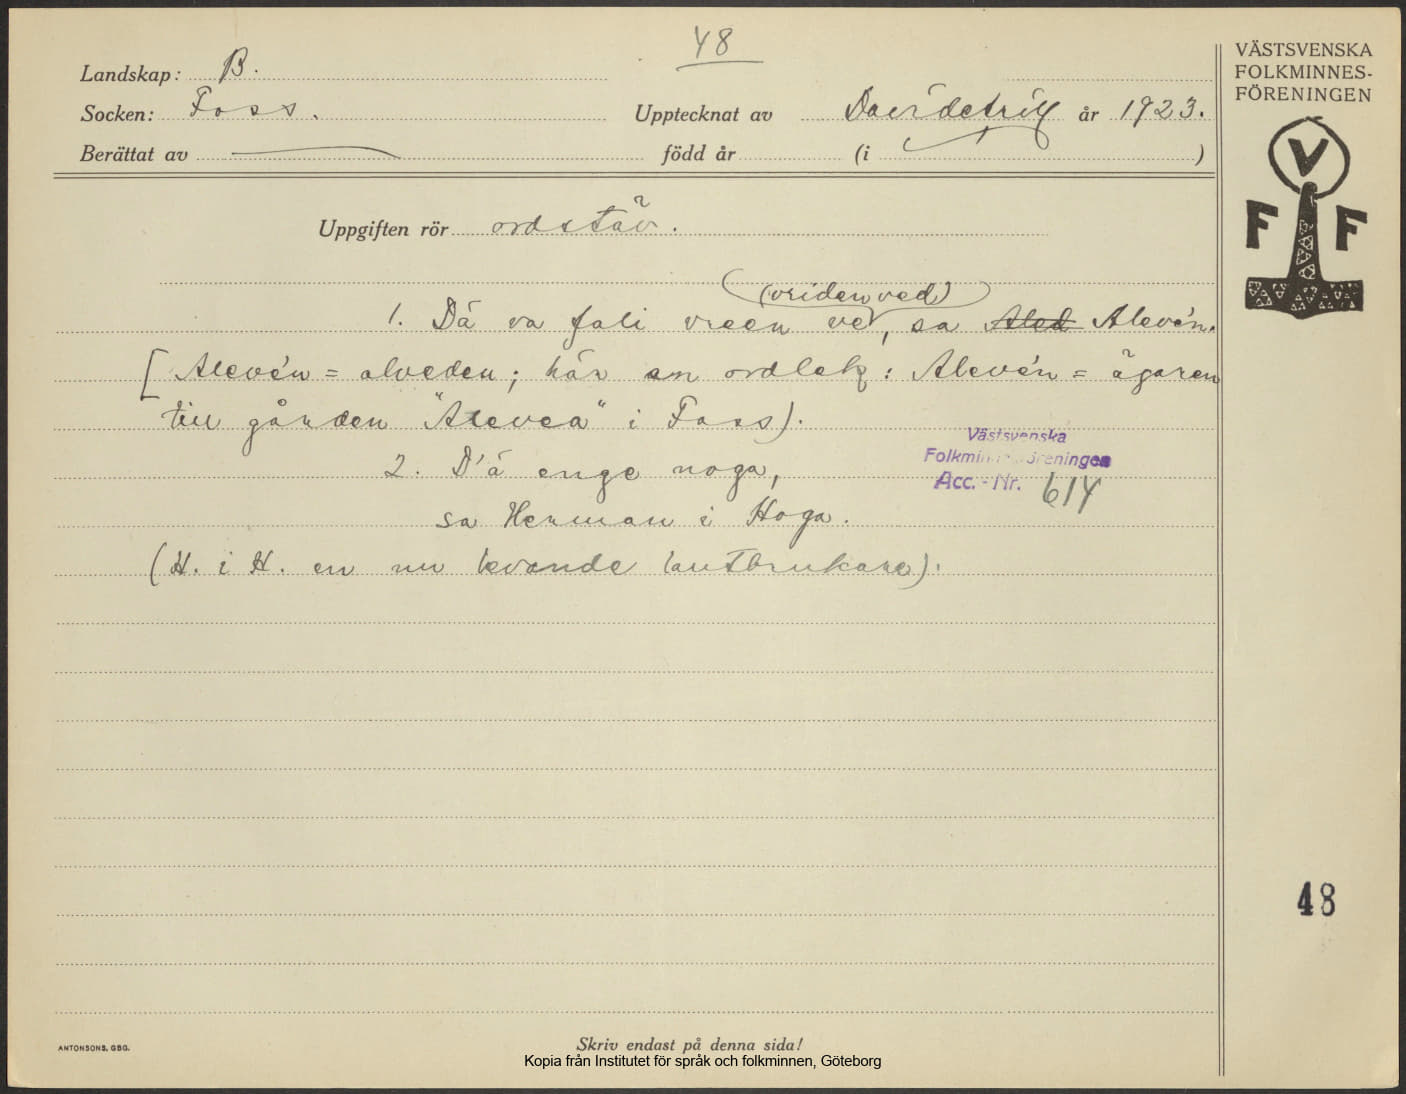 48
VÄSTSVENSKA
FOLKMINNES-
FÖRENINGEN
V
F F
Landskap: B.
Socken: Foss. Upptecknat av år 1923.
Berättat av född år (i )
Uppgiften rör ordstäv.
(vriden ved)
1. Dä va fali vreen ve, sa Aled Alevé'n.
[Alevé'n = alveden; här en ordlek: Alevé'n = ägaren
till gården "Alevea" i Foss).
Västsvenska
Folkminnesföreningen
Acc.-Nr. 614
2. D'ä enge noga,
sa Herman i Hoga.
(H. i H. en nu levande lantbrukare).
48
ANTONSONS, GBG.
Skriv endast på denna sida!
Kopia från Institutet för språk och folkminnen, Göteborg